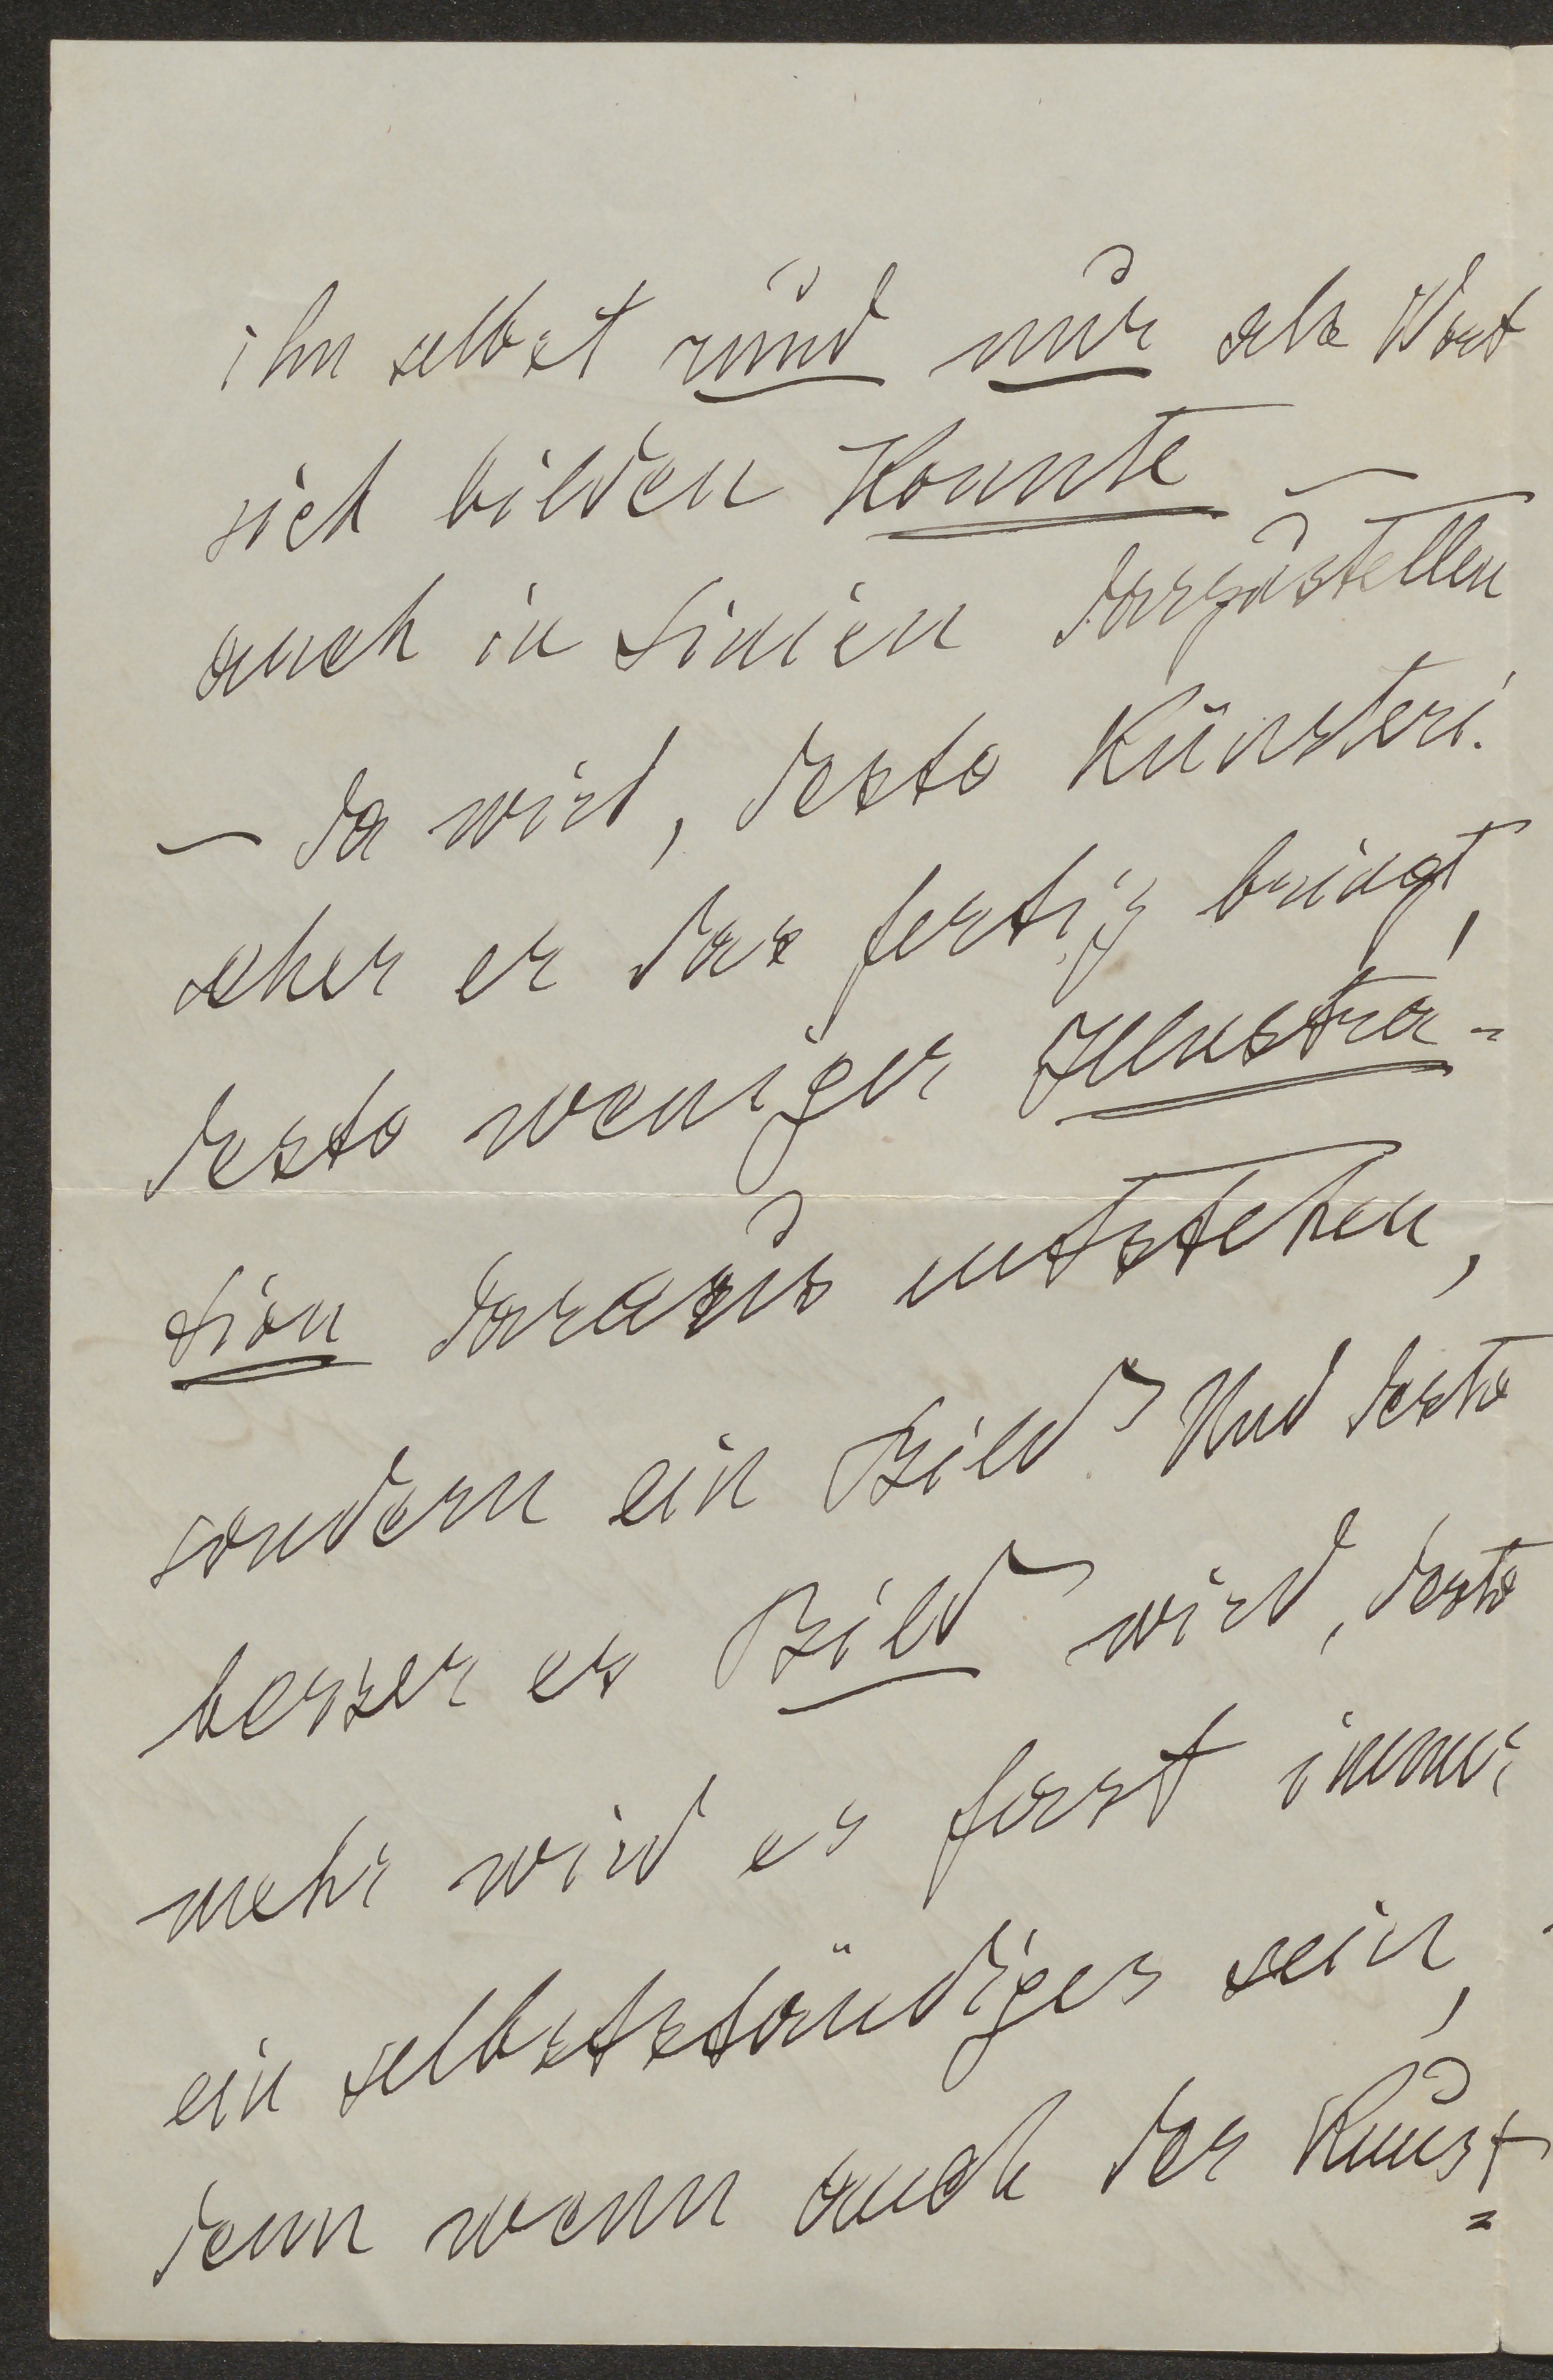 ihn selbst rund nur als Wort
sich bilden konnte –
auch in Linien darzustellen
– da wird, desto künstleri.
scher er das fertig bringt,
desto weniger Illustra-
tion daraus entstehen,
sondern ein Bild. Und desto
besser es Bild wird, desto
mehr wird es fast immer
ein selbstständiges sein,
denn wenn auch der Kunst=